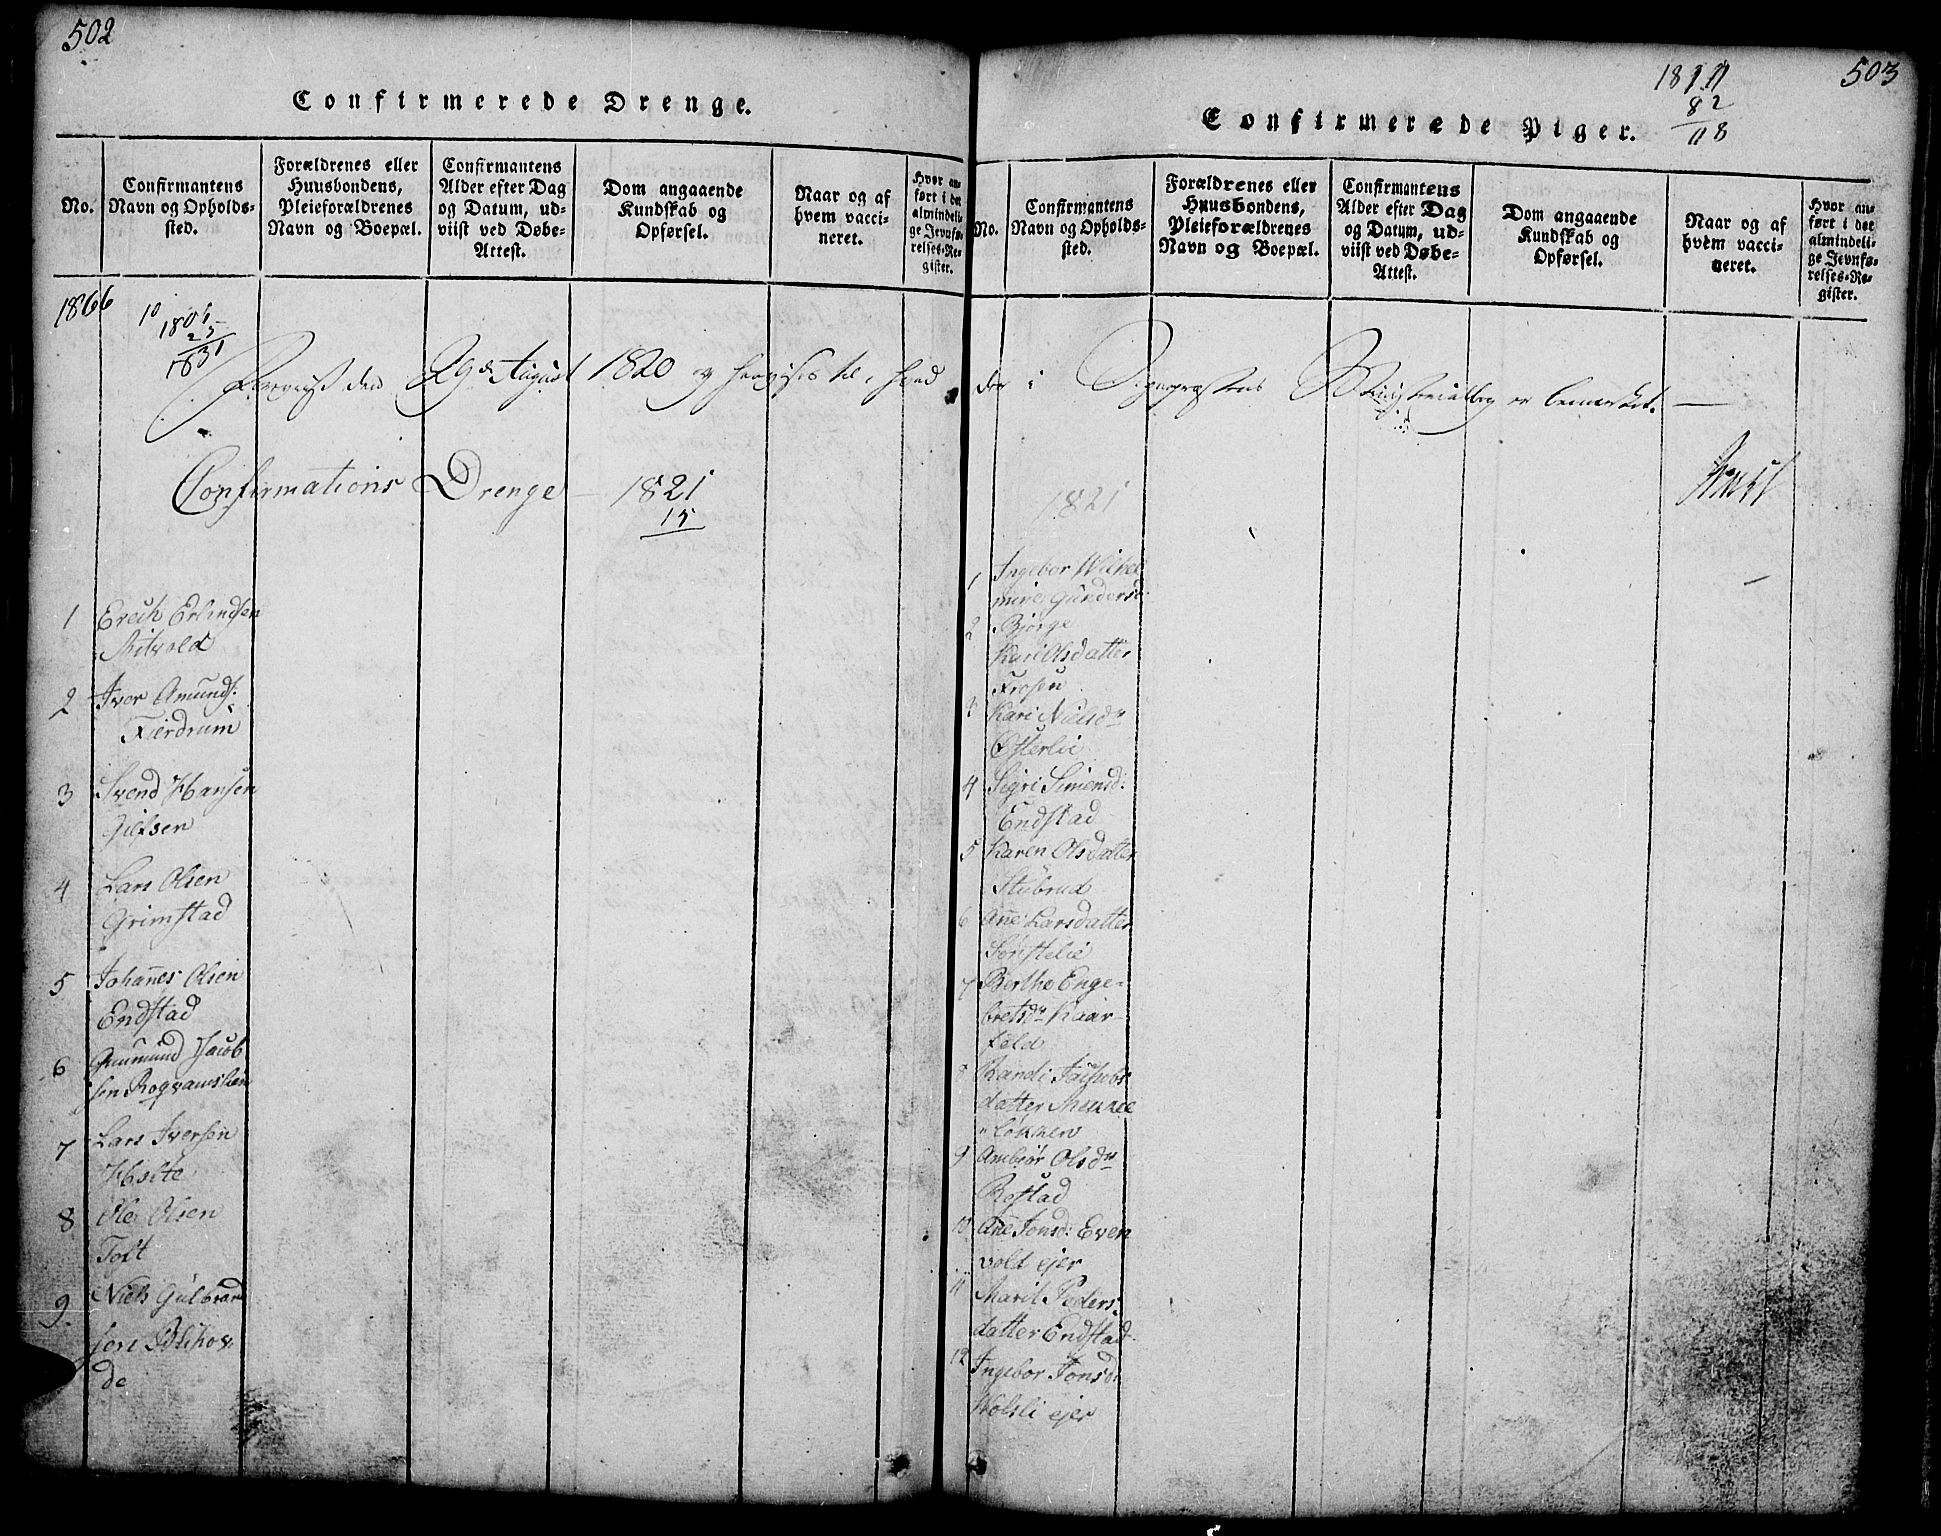 502
Confirmerede Drenge.
No.
Confirmantens
Navn og Opholds-
sted.
Forældrenes eller
Huusbondens,
Pleieforældrenes
Navn og Boepæl.
Confirmantens
Alder efter Dag
og Datum, ud-
viist ved Døbe-
Attest.
Dom angaaende
Kundskab og
Opførsel.
Naar og af
hvem vacci-
neret.
Hvor an-
ført i det
almindeli-
ge Jevnfø-
relses-Re-
gister.
1866
10
1806
25
1831
den 29de August 1820 og henvises til, hvad
Confirmations Drenge 1821
15
1 Erich Erlendsen
2 Iver Amunds:
Fierdrum
3 Svend Hansen
4 Lars Olsen
Grimstad
5 Johan̄es Olsen
Endstad
6 Amund Jacob
sen
7 Lars Iversen
8 Ole Olsen
Toft
9. Niels Gulbrand
sen
de
503
1811
82
118
Confirmerede Piger.
No.
Confirmantens
Navn og Opholds-
sted.
Forældrenes eller
Huusbondens,
Pleieforældrenes
Navn og Boepæl.
Confirmantens
Alder efter Dag
og Datum, ud-
viist ved Døbe-
Attest.
Dom angaaende
Kundskab og
Opførsel.
Naar og af
hvem vacci-
neret.
Hvor an-
ført i det
almindeli-
ge Jevnfø-
relses-Re-
gister.
der i Sognepræstens er bemerket. —
1821
1 Ingebor Wilhel
mine Gunders
2 Bjørge
Kari Olsdatter
Frosen
3 Kari Nielsdr
Østerlie
4 Sigri Simensd:
Endstad
5 Karen Olsdatter
Stubrud
6 An̄e Larsdatter
Sønstelie
7 Berthe Enge-
bretsdr Kaar-
feld
8 Randi Jacobs
datter
løkken
9 Ambiør Olsdr
Rostad
10 An̄e Jonsd: Even
vold ejer
11 Marit Peders
datter Endstad
12 Ingebor Jonsd:
Holsli ejer